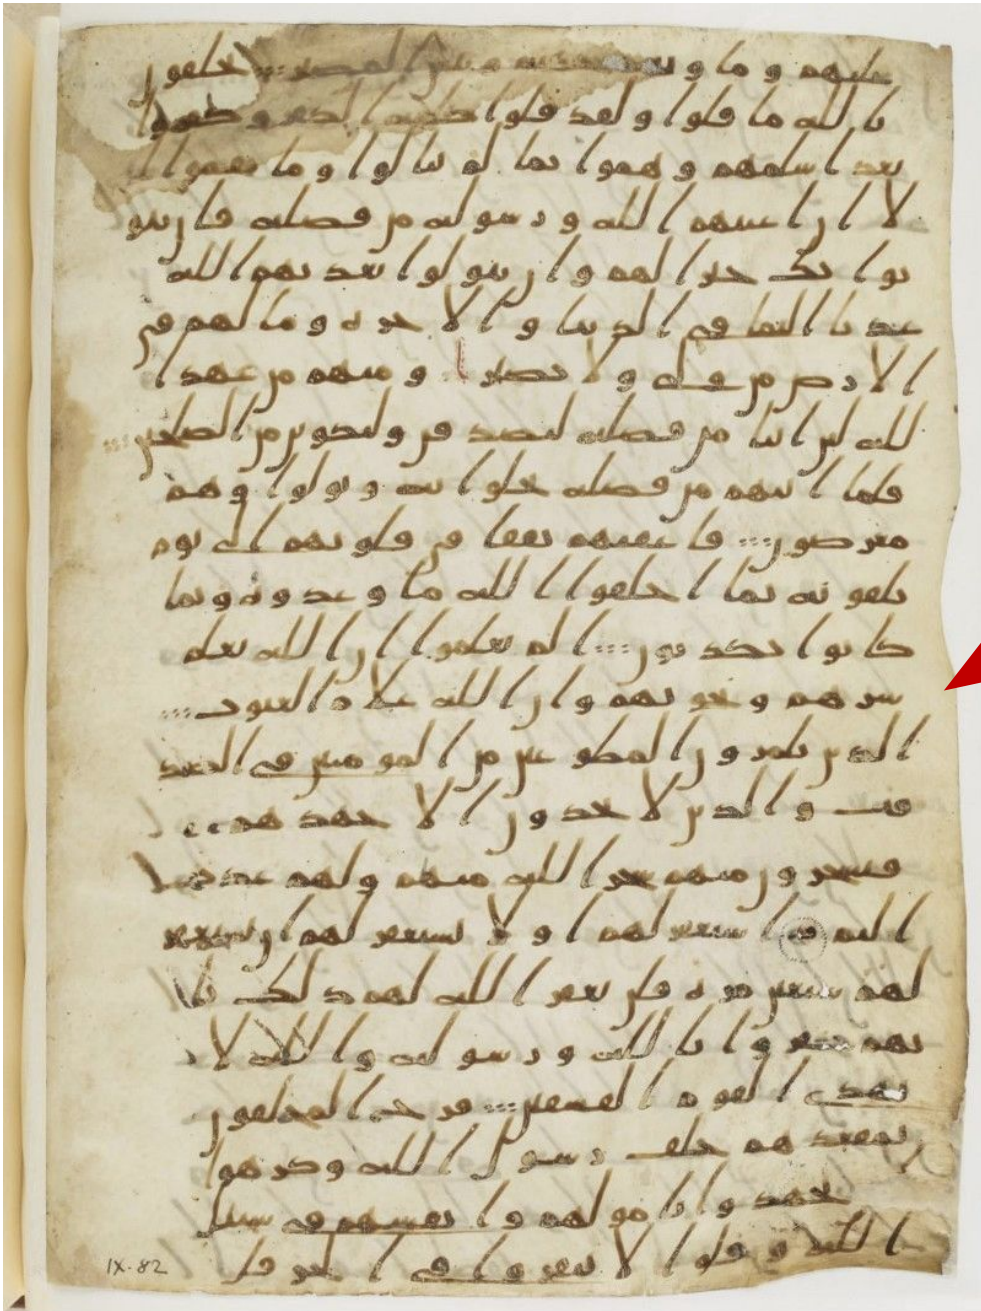 عليهم وماويهم جهنم وبئس المصير يحلفون
بالله ما قلوا ولقد قلوا كلمة الكفر وكفروا
بعد اسلمهم وهموا بما لم ينالوا وما نقموا ا
لا ان اغنيهم الله ورسوله من فضله فان يتو
بوا يك خيرا لهم وان يتولوا يعذبهم الله
عذابا اليما في الدنيا والاخرة وما لهم في
الارض من ولي ولا نصير ومنهم من عهد ا
لله لئن اتينا من فضله لنصدقن ولنكونن من الصلحين
فلما اتيهم من فضله بخلوا به وتولوا وهم
معرضون فاعقبهم نفقا في قلوبهم الى يوم
يلقونه بما اخلفوا الله ما وعدوه وبما
كانوا يكذبون الم يعلموا ان الله يعلم
سرهم ونجويهم وان الله علام الغيوب
الذين يلمزون المطوعين من المومنين في الصد
قت والذين لا يجدون الا جهدهم
فيسخرون منهم سخر الله منهم ولهم عذب
اليم استغفر لهم او لا تستغفر لهم ان تستغفر
لهم سبعين مرة فلن يغفر الله لهم ذلك با
نهم كفروا بالله ورسوله والله لا
يهدي القوم الفسقين فرح المخلفون
بمقعدهم خلف رسول الله وكرهوا
يجهدوا باموالهم وانفسهم في سبيل
الله وقلوا لا تنفروا في الحر قل
IX. 82